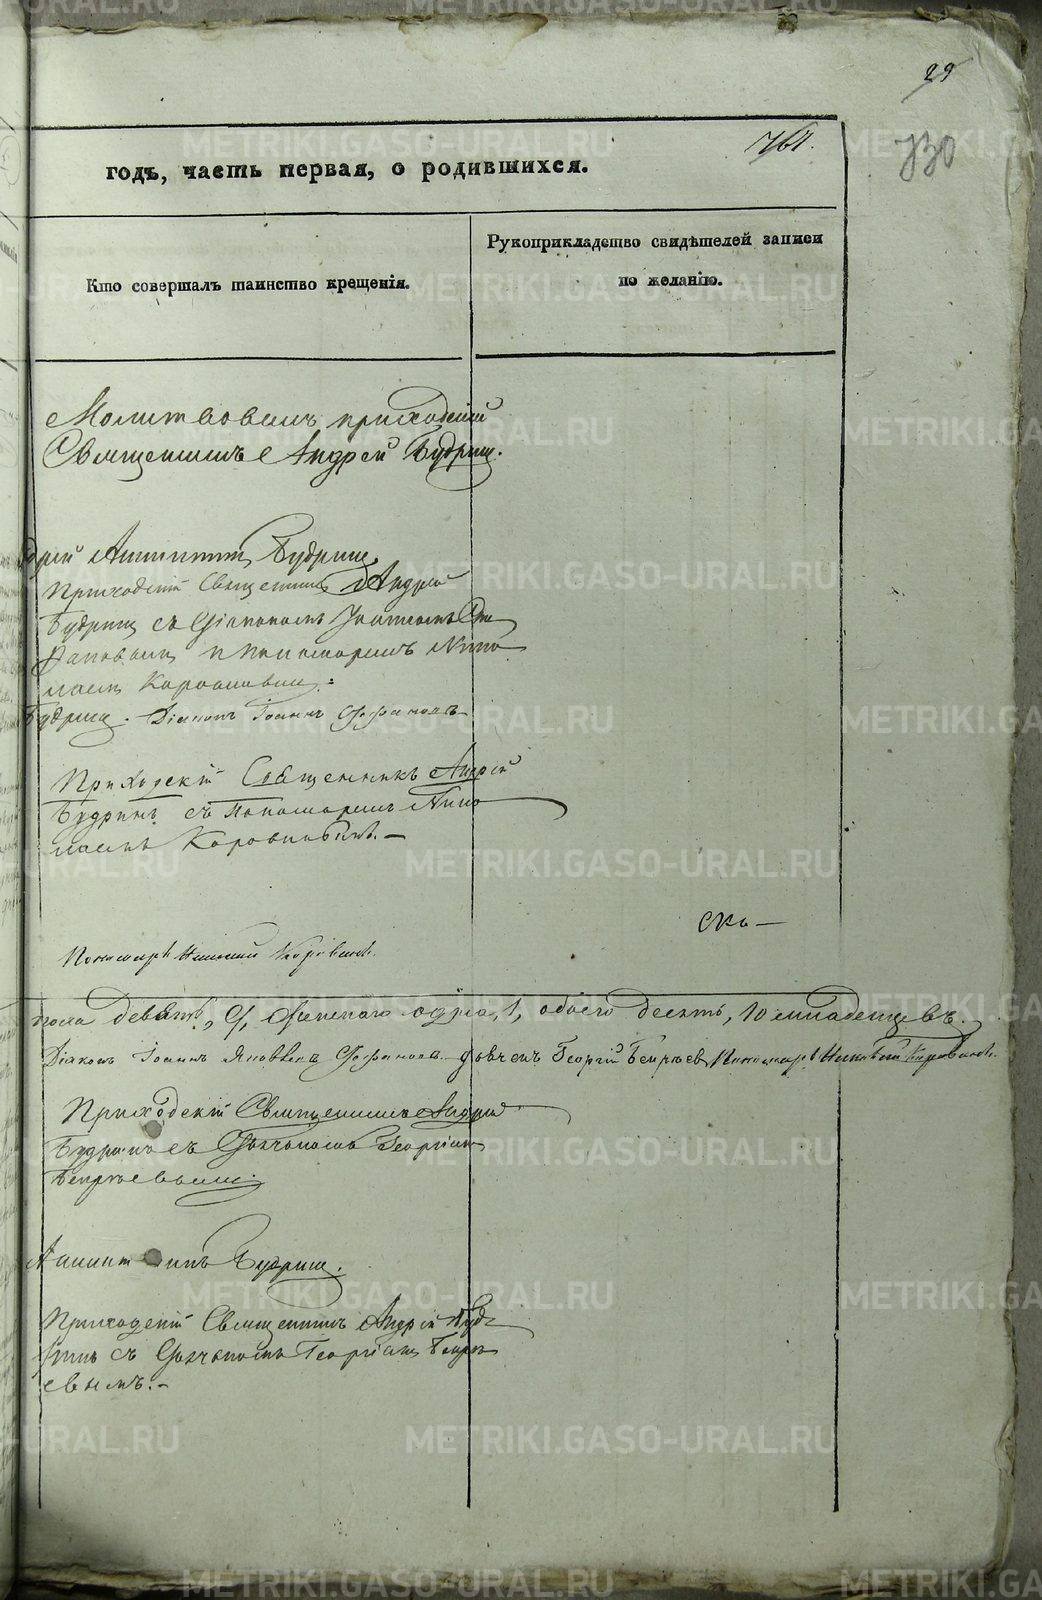 29
761.
730
годъ, часть первая, о родившихся.
Кто совершалъ таинство крещенія.
Рукоприкладство свидѣтелей записи
по желанію.
Молитвовалъ приходскій
Священникъ Андрей Будринъ.
дрей Будринъ
Приходскій Священникъ Андрей
Будринъ съ Діакономъ Іоанномъ
и пономаремъ Нико
лаемъ Коровинымъ.
Будринъ. Діаконъ Іоаннъ
Приходскій Священникъ Андрей
Будринъ съ пономаремъ Нико
лаемъ Коровинымъ.—
Пономарь Николай Коровинъ.
пола девять, 9, женскаго одна, 1, обоего десять, 10 младенцевъ.
Діаконъ Іоаннъ Яковлевъ дьячекъ Георгій Пономарь Николай Коровинъ.
Приходскій Священникъ Андрей
Будринъ съ Дьячкомъ Георгіемъ
Будринъ.
Приходскій Священникъ Андрей Буд
ринъ съ Дьячкомъ Георгіемъ
евымъ.—
METRIKI.GASO-URAL.RU